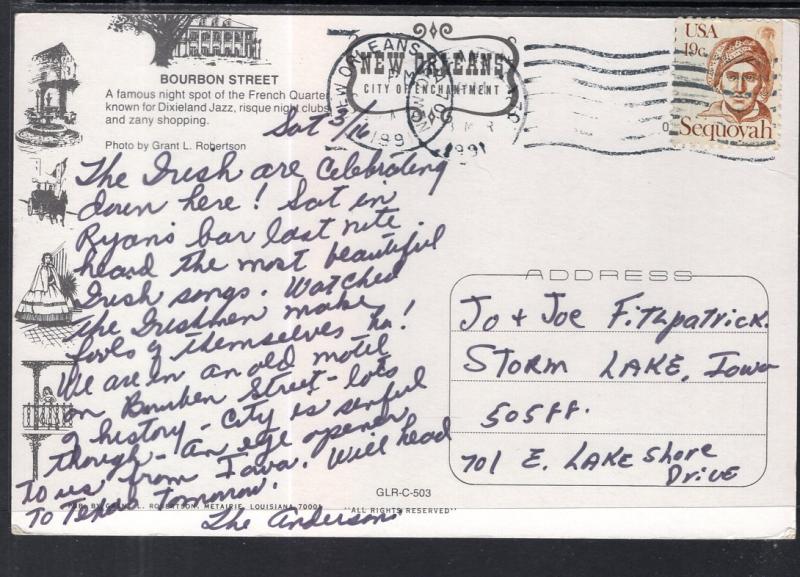 BOURBON STREET
A famous night spot of the French Quarter,
known for Dixieland Jazz, risque night clubs
and zany shopping.
Photo by Grant L. Robertson
NEW ORLEANS
CITY OF ENCHANTMENT
NEW ORLEANS
PM
1991
1991
USA
19c
Sequoyah
Sat 3/16
The Irish are celebrating
down here! Sat in
Ryan's bar last nite
heard the most beautiful
Irish songs. Watched
the Irishmen make
fools of themselves ha!
We are in an old motel
on Bourbon Street - lots
of history - City is sinful
though - An eye opener
to us from Iowa. Will head
To Texas Tomorrow.
The Andersons
ADDRESS
Jo + Joe Fithpatrick.
STORM LAKE, Iowa
505FF.
701 E. LAKE Shore
Drive
GLR-C-503
PUB. BY GRANT L. ROBERTSON, METAIRIE, LOUISIANA 70001
"ALL RIGHTS RESERVED"